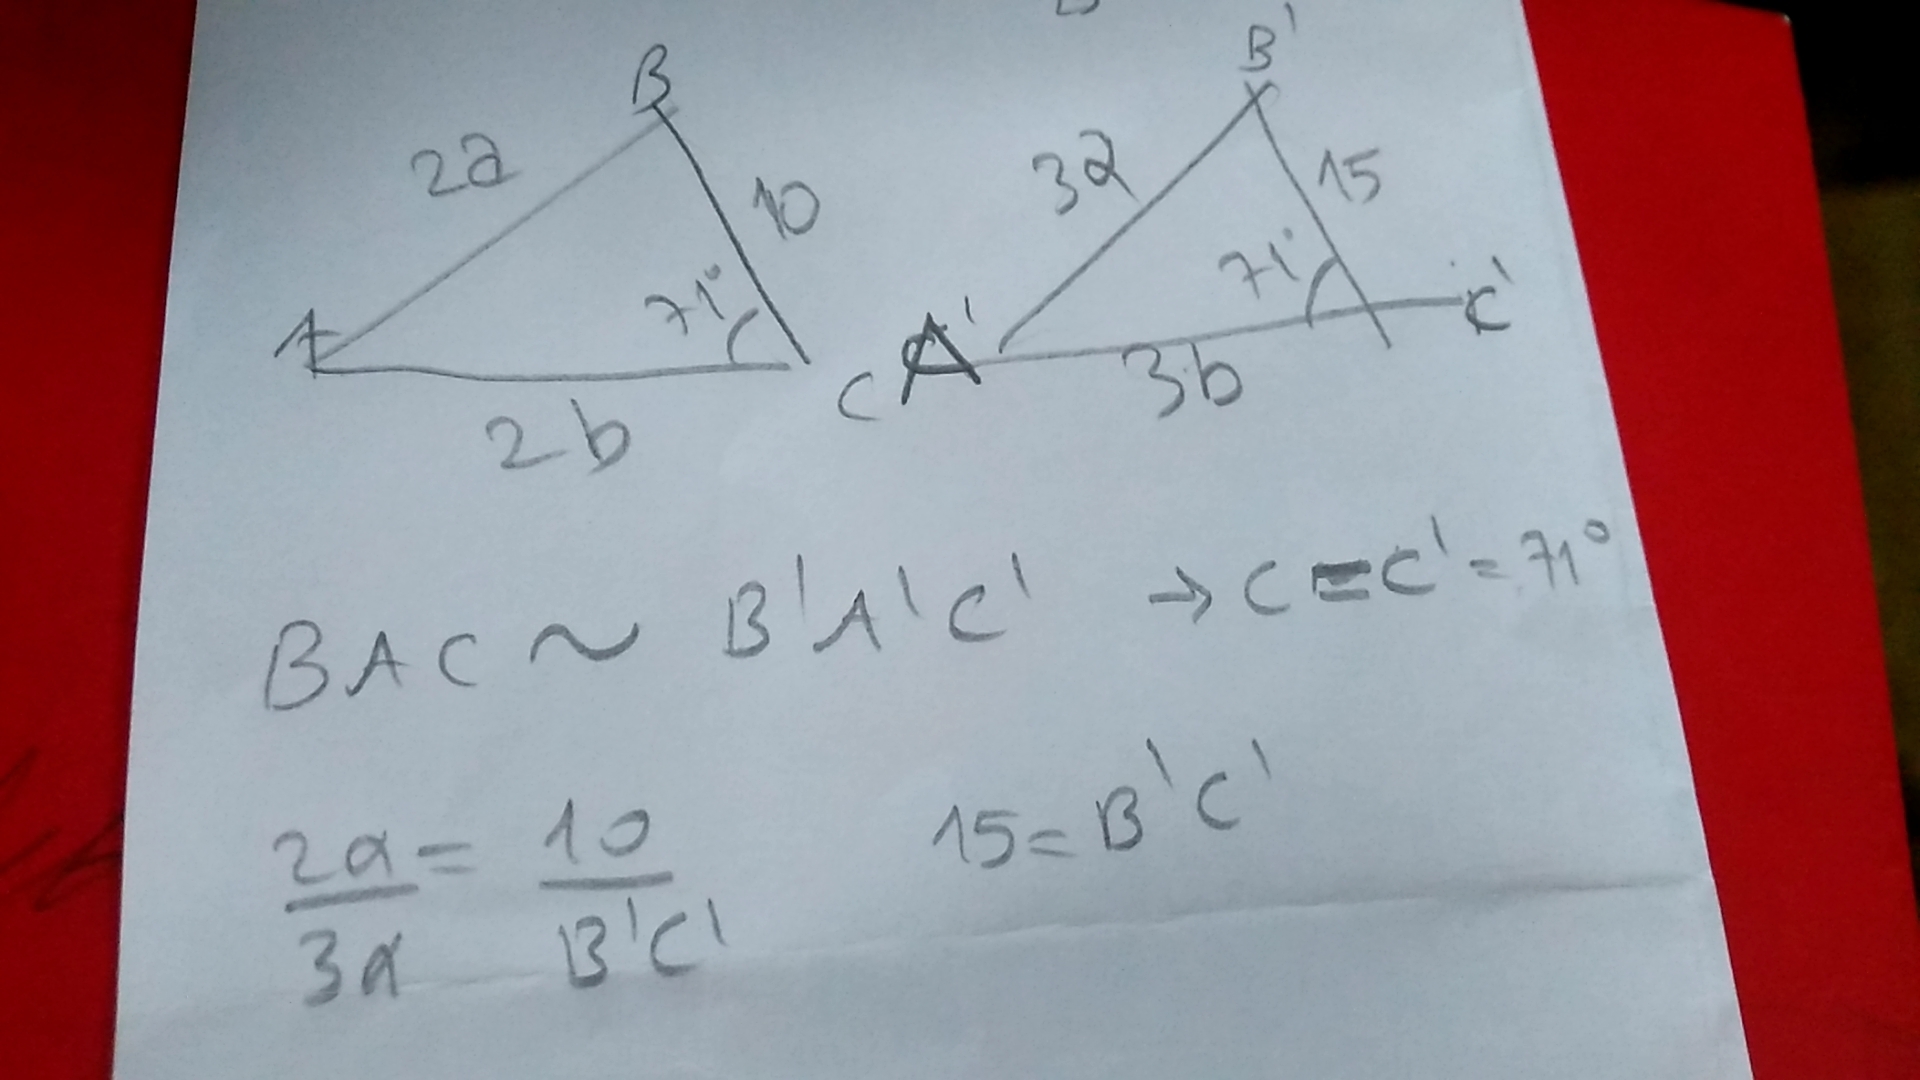 B B'
2a 10 3a 15
A 71° C A' 71° C'
2b 3b
BAC ~ B'A'C' → C = C' = 71°
2a/3a = 10/B'C' 15 = B'C'